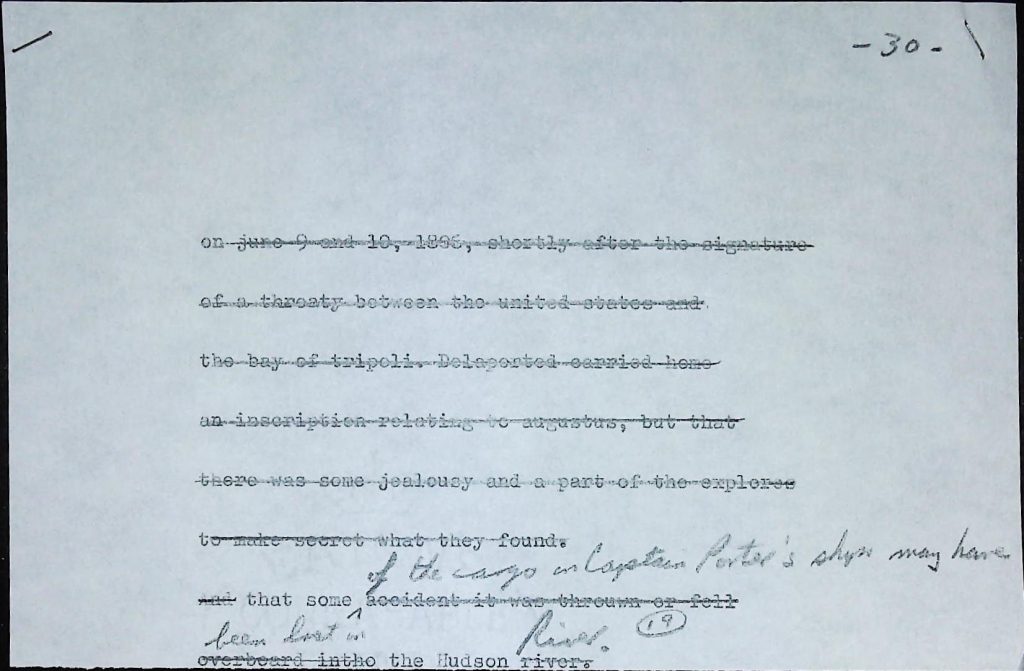 - 30 -
on june 9 and 10, 1805, shortly after the signature
of a threaty between the united states and
the bay of tripoli. Delaported carried home
an inscription relating to augustus, but that
there was some jealousy and a part of the explores
to make secret what they found.
of the cargo in Captain Porter's ships may have
And that some accident it was throuwn or fell
been lost in River. 19
overboard intho the Hudson river.